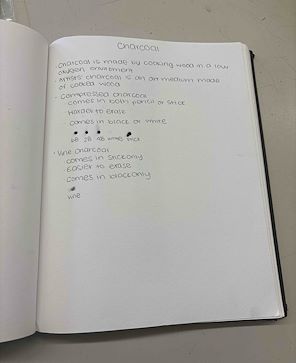 Charcoal
· Charcoal is made by cooking wood in a low
oxygen enviroment
· Artists charcoal is an art medium made
of cooked wood
· Compressed charcoal
comes in both pencil or stick
Harder to erase
comes in black or white
6B 2B 4B white stick
· Vine charcoal
comes in stick only
Easier to erase
comes in black only
vine